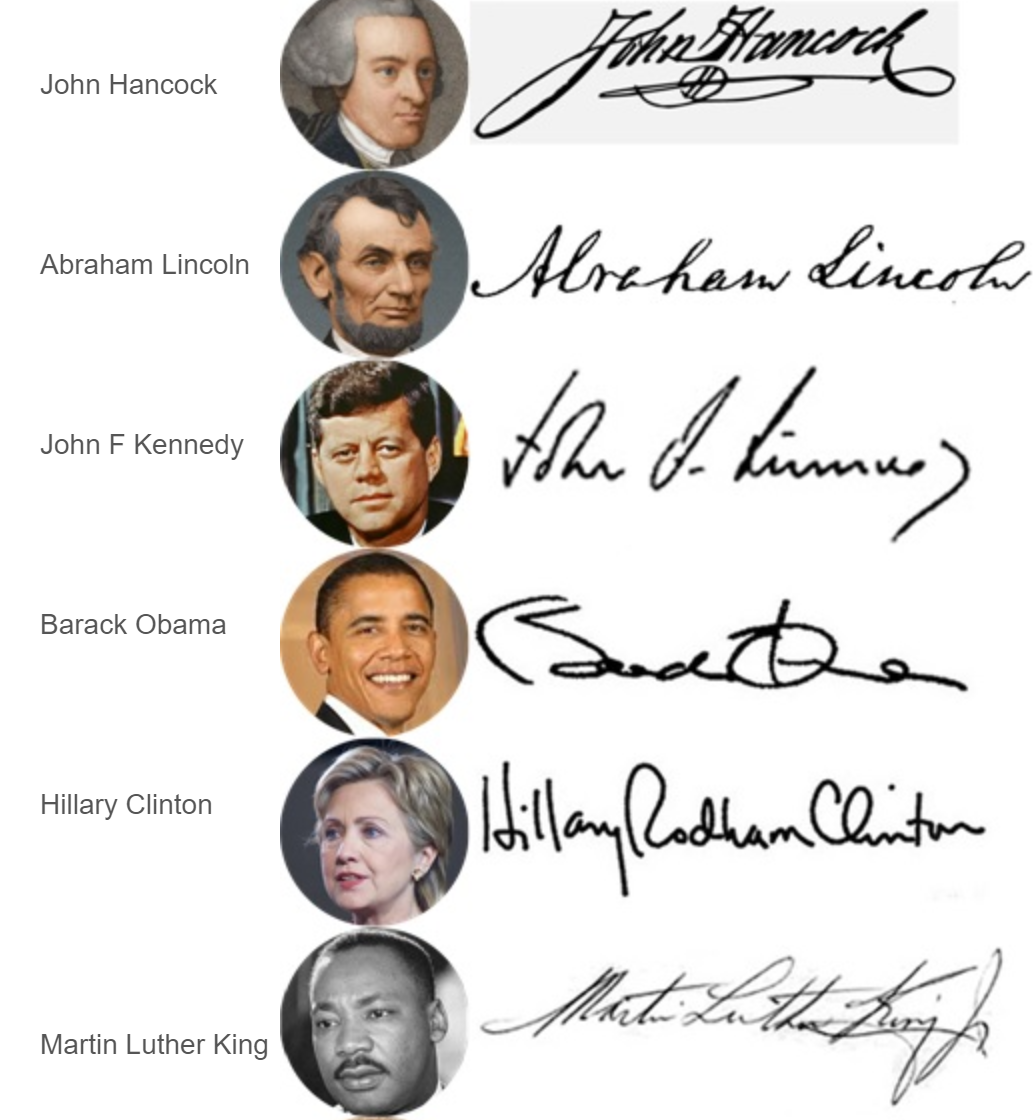 John Hancock
John Hancock
Abraham Lincoln
Abraham Lincoln
John F Kennedy
John F. Kennedy
Barack Obama
Barack Obama
Hillary Clinton
Hillary Rodham Clinton
Martin Luther King
Martin Luther King Jr